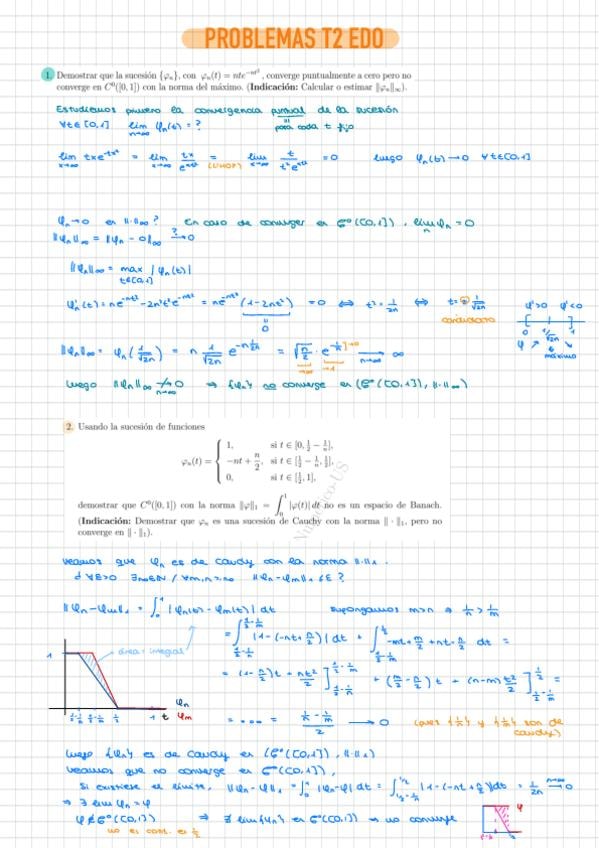 PROBLEMAS T2 EDO
1. Demostrar que la sucesión {φₙ}, con φₙ(t) = nte^{-nt²}, converge puntualmente a cero pero no
converge en C⁰([0,1]) con la norma del máximo. (Indicación: Calcular o estimar ‖φₙ‖∞).
Estudiemos primero la convergencia puntual de la sucesión
∀t∈[0,1] lim φₙ(t) = ? para cada t fijo
n→∞
lim txe^{-tx²} = lim tx/e^{xt²} = (L'HOP) lim t/(t²e^{xt²}) = 0 luego φₙ(t)→0 ∀t∈[0,1]
φₙ→0 en ‖·‖∞? En caso de converger en C⁰([0,1]), lim φₙ = 0
‖φₙ‖∞ = ‖φₙ - 0‖∞ →? 0
‖φₙ‖∞ = max |φₙ(t)|
t∈[0,1]
φ'ₙ(t) = ne^{-nt²} - 2n²t²e^{-nt²} = ne^{-nt²}(1-2nt²) = 0 ⟺ t² = 1/2n ⟺ t = 1/√2n φ'>0 φ'<0
0
candidato 0 1/√2n 1
φ ↗ ↘ máximo
‖φₙ‖∞ = φₙ(1/√2n) = n 1/√2n e^{-n 1/2n} = √(n/2) · e^{-1/2} → ∞
n→∞
luego ‖φₙ‖∞ ↛ 0 ⇒ {φₙ} no converge en (C⁰([0,1]), ‖·‖∞)
2. Usando la sucesión de funciones
φₙ(t) = { 1, si t ∈ [0, 1/2 - 1/n],
-nt + n/2, si t ∈ [1/2 - 1/n, 1/2],
0, si t ∈ [1/2, 1],
demostrar que C⁰([0,1]) con la norma ‖φ‖₁ = ∫₀¹ |φ(t)| dt no es un espacio de Banach.
(Indicación: Demostrar que φₙ es una sucesión de Cauchy con la norma ‖·‖₁, pero no
converge en ‖·‖₁).
veamos que φₙ es de Cauchy con la norma ‖·‖₁.
¿ ∀ε>0 ∃n₀∈ℕ / ∀m,n≥n₀ ‖φₙ-φₘ‖₁ ≤ ε ?
‖φₙ-φₘ‖₁ = ∫₀¹ |φₙ(t)-φₘ(t)| dt Supongamos m>n ⇒ 1/n > 1/m
= ∫_{1/2-1/n}^{1/2-1/m} |1-(-nt+n/2)| dt + ∫_{1/2-1/m}^{1/2} -mt+m/2+nt-n/2 dt =
área = integral
= (1-n/2)t + nt²/2 ]_{1/2-1/n}^{1/2-1/m} + (m/2-n/2)t + (n-m)t²/2 ]_{1/2-1/m}^{1/2} =
1 1/2-1/n 1/2-1/m 1/2 1 t φₙ φₘ
= .... = (1/n - 1/m)/2 → 0 (pues {1/n} y {1/m} son de
Cauchy)
luego {φₙ} es de Cauchy en (C⁰([0,1]), ‖·‖₁)
veamos que no converge en C⁰([0,1]),
Si existiese el límite, ‖φₙ-φ‖₁ = ∫₀¹ |φₙ-φ| dt = ∫_{1/2-1/n}^{1/2} |1-(-nt+n/2)| dt = 1/2n → 0
n→∞
⇒ ∃ lim φₙ = φ
φ∉C⁰([0,1]) ⇒ ∄ lim{φₙ} en C⁰([0,1]) ⇒ no converge φ
no es cont. en 1/2